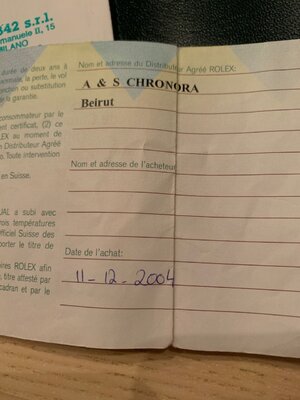 642 s.r.l.
manuele II, 15
MILANO
durée de deux ans à
normale, la perte, le vol
jonction ou substitution
la garantie.
consommateur par le
ent certificat, (2) ce
EX au moment de
n Distributeur Agréé
o. Toute intervention
en Suisse.
UAL a subi avec
rois températures
fficiel Suisse des
porter le titre de
oires ROLEX afin
, titre attesté par
cadran et par le
Nom et adresse du Distributeur Agréé ROLEX:
A & S CHRONORA
Beirut
Nom et adresse de l'acheteur
Date de l'achat:
11-12-2004